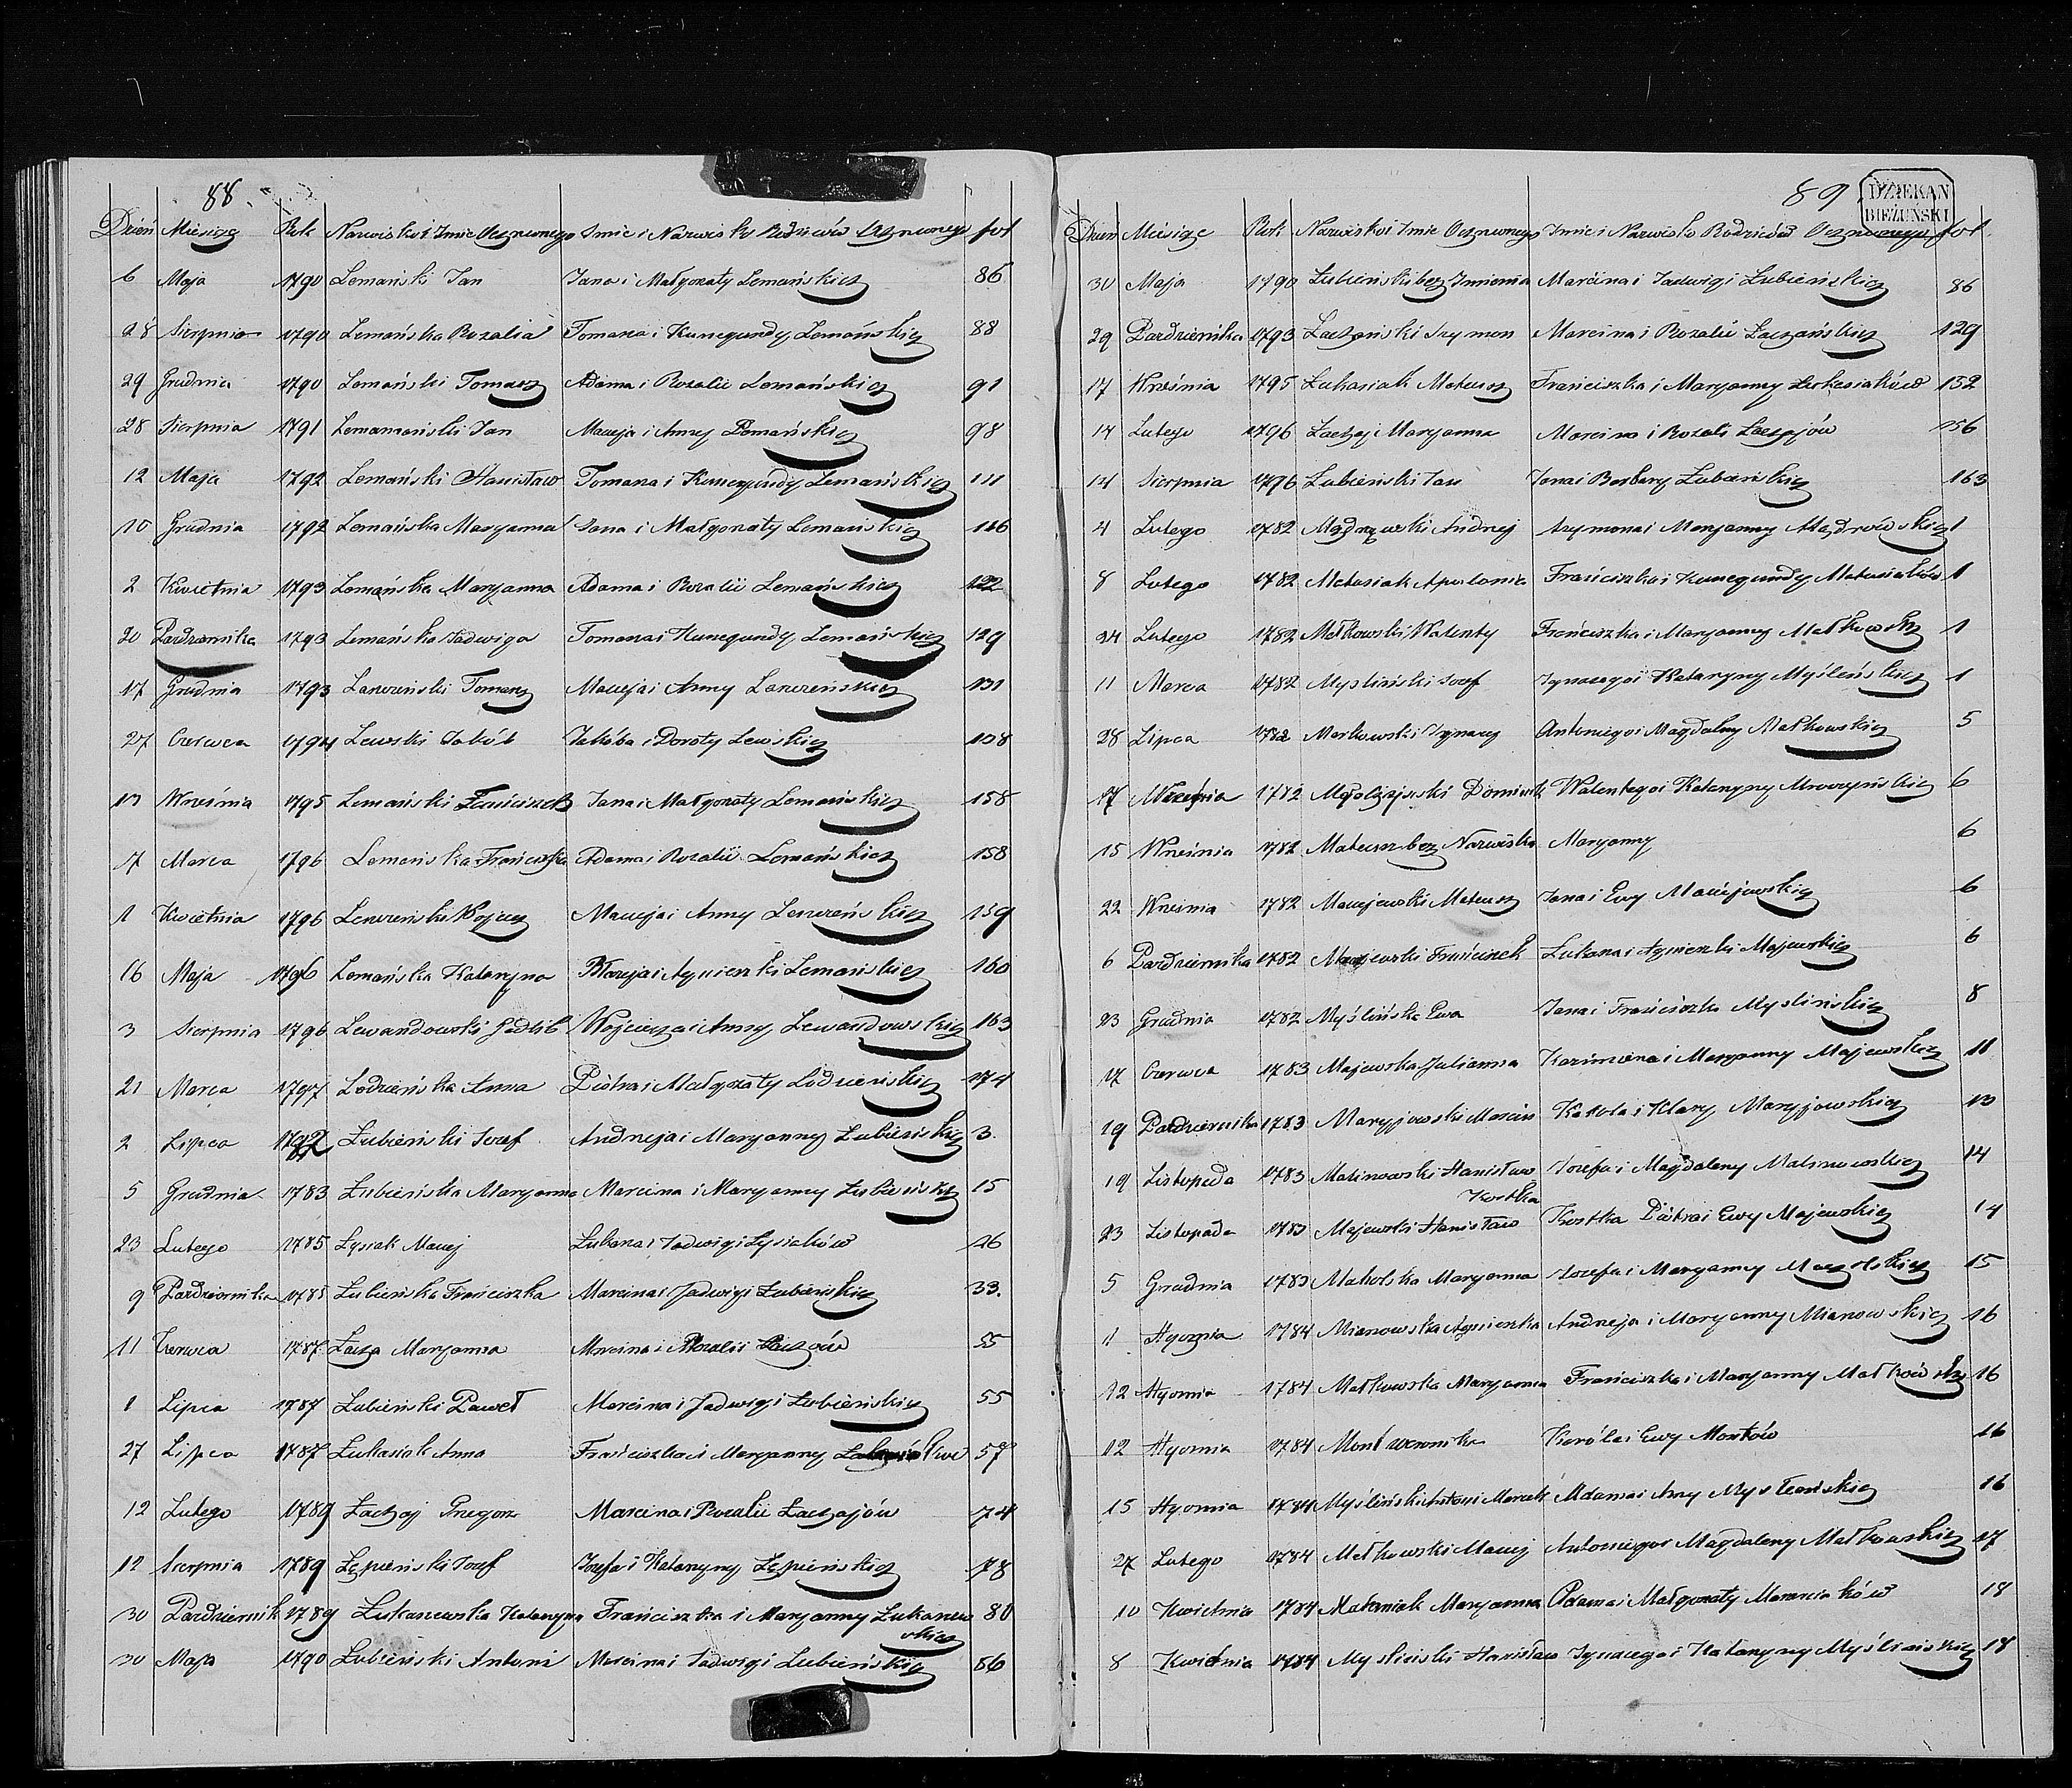 88
Dzień Miesiąc Rok Nazwisko i Imie Ocznionego Imie i Nazwisko Rodziców fol
6 Maja 1790 Lemański Jan Jana i Małgorzaty Lemańskich 86
28 Sierpnia 1790 Lemańska Rozalia Tomasza i Kunegundy Lemańskich 88
29 Grudnia 1790 Lemański Tomasz Adama i Rozalii Lemańskich 91
28 Sierpnia 1791 Lemamański Jan Macieja i Anny Lemańskich 98
12 Maja 1792 Lemański Stanisław Tomasza i Kunegundy Lemańskich 111
10 Grudnia 1792 Lemańska Maryanna Jana i Małgorzaty Lemańskich 116
2 Kwietnia 1793 Lemańska Maryanna Adama i Rozalii Lemańskich 122
20 Pazdziernika 1793 Lemańska Jadwiga Tomasza i Kunegundy Lemańskich 129
17 Grudnia 1793 Tomasz Macieja i Anny 131
27 Czerwca 1794 Lewski Jakób Jakóba i Doroty Lewskich 138
13 Września 1795 Lemański Franciszek Jana i Małgorzaty Lemańskich 158
7 Marca 1796 Lemańska Franciszka Adama i Rozalii Lemańskich 158
1 Kwietnia 1796 Wojciech Macieja i Anny 159
16 Maja 1796 Lemańska Katarzyna Błażeja i Agnieszki Lemańskich 160
3 Sierpnia 1796 Lewandowski Gotlib Wojciecha i Anny Lewandowskich 163
21 Marca 1797 Lodzieńska Anna Piotra i Małgorzaty Lodzieńskich 174
2 Lipca 1782 Łubieński Jozef Andrzeja i Maryanny Łubieńskich 3
5 Grudnia 1783 Łubieńska Maryanna Marcina i Maryanny Łubieńskich 15
23 Lutego 1785 Łysiak Maciej Łukasza i Jadwigi Łysiaków 26
9 Pazdziernika 1785 Łubieńska Franciszka Marcina i Jadwigi Łubieńskich 33.
11 Czerwca 1787 Łacza Maryanna Marcina i Rozalii Łaczów 55
1 Lipca 1787 Łubieński Paweł Marcina i Jadwigi Łubieńskich 55
27 Lipca 1787 Łukasiak Anna Franciszka i Maryanny 57
12 Lutego 1789 Łaczaj Grzegorz Marcina i Rozalii Łaczajów 74
12 Sierpnia 1789 Łępieński Jozef Jozefa i Katarzyny Łępieńskich 78
30 Pazdziernik 1789 Łukaszewska Katarzyna Franciszka i Maryanny Łukaszew 80
skich
30 Maja 1790 Łubieński Antoni Marcina i Jadwigi Łubieńskich 86
89 DZIEKAN
BIEŻUŃSKI
Dzień Miesiąc Rok Nazwisko i Imie Imie i Nazwisko Rodziców fol
30 Maja 1790 Łubieński bez Imienia Marcina i Jadwigi Łubieńskich 86
29 Pazdziernika 1793 Łaczański Szymon Marcina i Rozalii Łaczańskich 129
17 Września 1795 Łukasiak Mateusz Franciszka i Maryanny Łukasiaków 152
14 Lutego 1796 Łaczaj Maryanna Marcina i Rozali Łaczajów 156
14 Sierpnia 1796 Łubieński Jan Jana i Barbary Łubieńskich 163
4 Lutego 1782 Andrzej Szymona i Maryanny Mądrowskich 1
8 Lutego 1782 Matusiak Apolonia Franciszka i Kunegundy Matusiaków 1
24 Lutego 1782 Małkowski Walenty Franciszka i Maryanny Małkowskich 1
11 Marca 1782 Mysliński Jozef Ignacego i Katarzyny Myśleńskich 1
28 Lipca 1782 Markowski Ignacy Antoniego i Magdaleny Małkowskich 5
17 Września 1782 Dominik Walentego i Katarzyny 6
15 Września 1782 Mateusz bez Nazwiska Maryanny 6
22 Września 1782 Maciejewski Mateusz Jana i Ewy Maciejewskich 6
6 Pazdziernika 1782 Majewski Franciszek Łukasza i Agnieszki Majewskich 6
23 Grudnia 1782 Myślińska Ewa Jana i Franciszki Myslińskich 8
17 Czerwca 1783 Majewska Julianna Kazimierza i Maryanny Majewskich 11
19 Pazdziernika 1783 Maryjowski Marcin Karola i Klary Maryjowskich 13
19 Listopada 1783 Malinowski Stanisław Jozefa i Magdaleny Malinowskich 14
Kostka
23 Listopada 1783 Majewski Stanisław Kostka Piotra i Ewy Majewskich 14
5 Grudnia 1783 Makolska Maryanna Jozefa i Maryanny 15
1 Stycznia 1784 Mianowska Agnieszka Andrzeja i Maryanny Mianowskich 16
12 Stycznia 1784 Małkowska Maryanna Franciszka i Maryanny Małkowskich 16
12 Stycznia 1784 Mont Weronika Karóla i Ewy Montów 16
15 Stycznia 1784 Myśliński Antoni Marcelli Adama i Anny 16
27 Lutego 1784 Małkowski Maciej Antoniego i Magdaleny Małkowskich 17
10 Kwietnia 1784 Maryanna Adama i Małgorzaty 18
8 Kwietnia 1784 Mysliński Stanisław Ignacego i Katarzyny Myślińskich 18